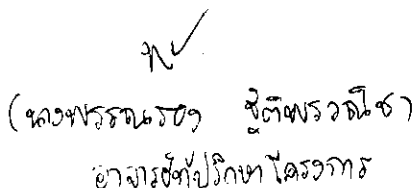 (นางพรรณรอง ชูติพรวณิช)
อาจารย์ที่ปรึกษาโครงการ